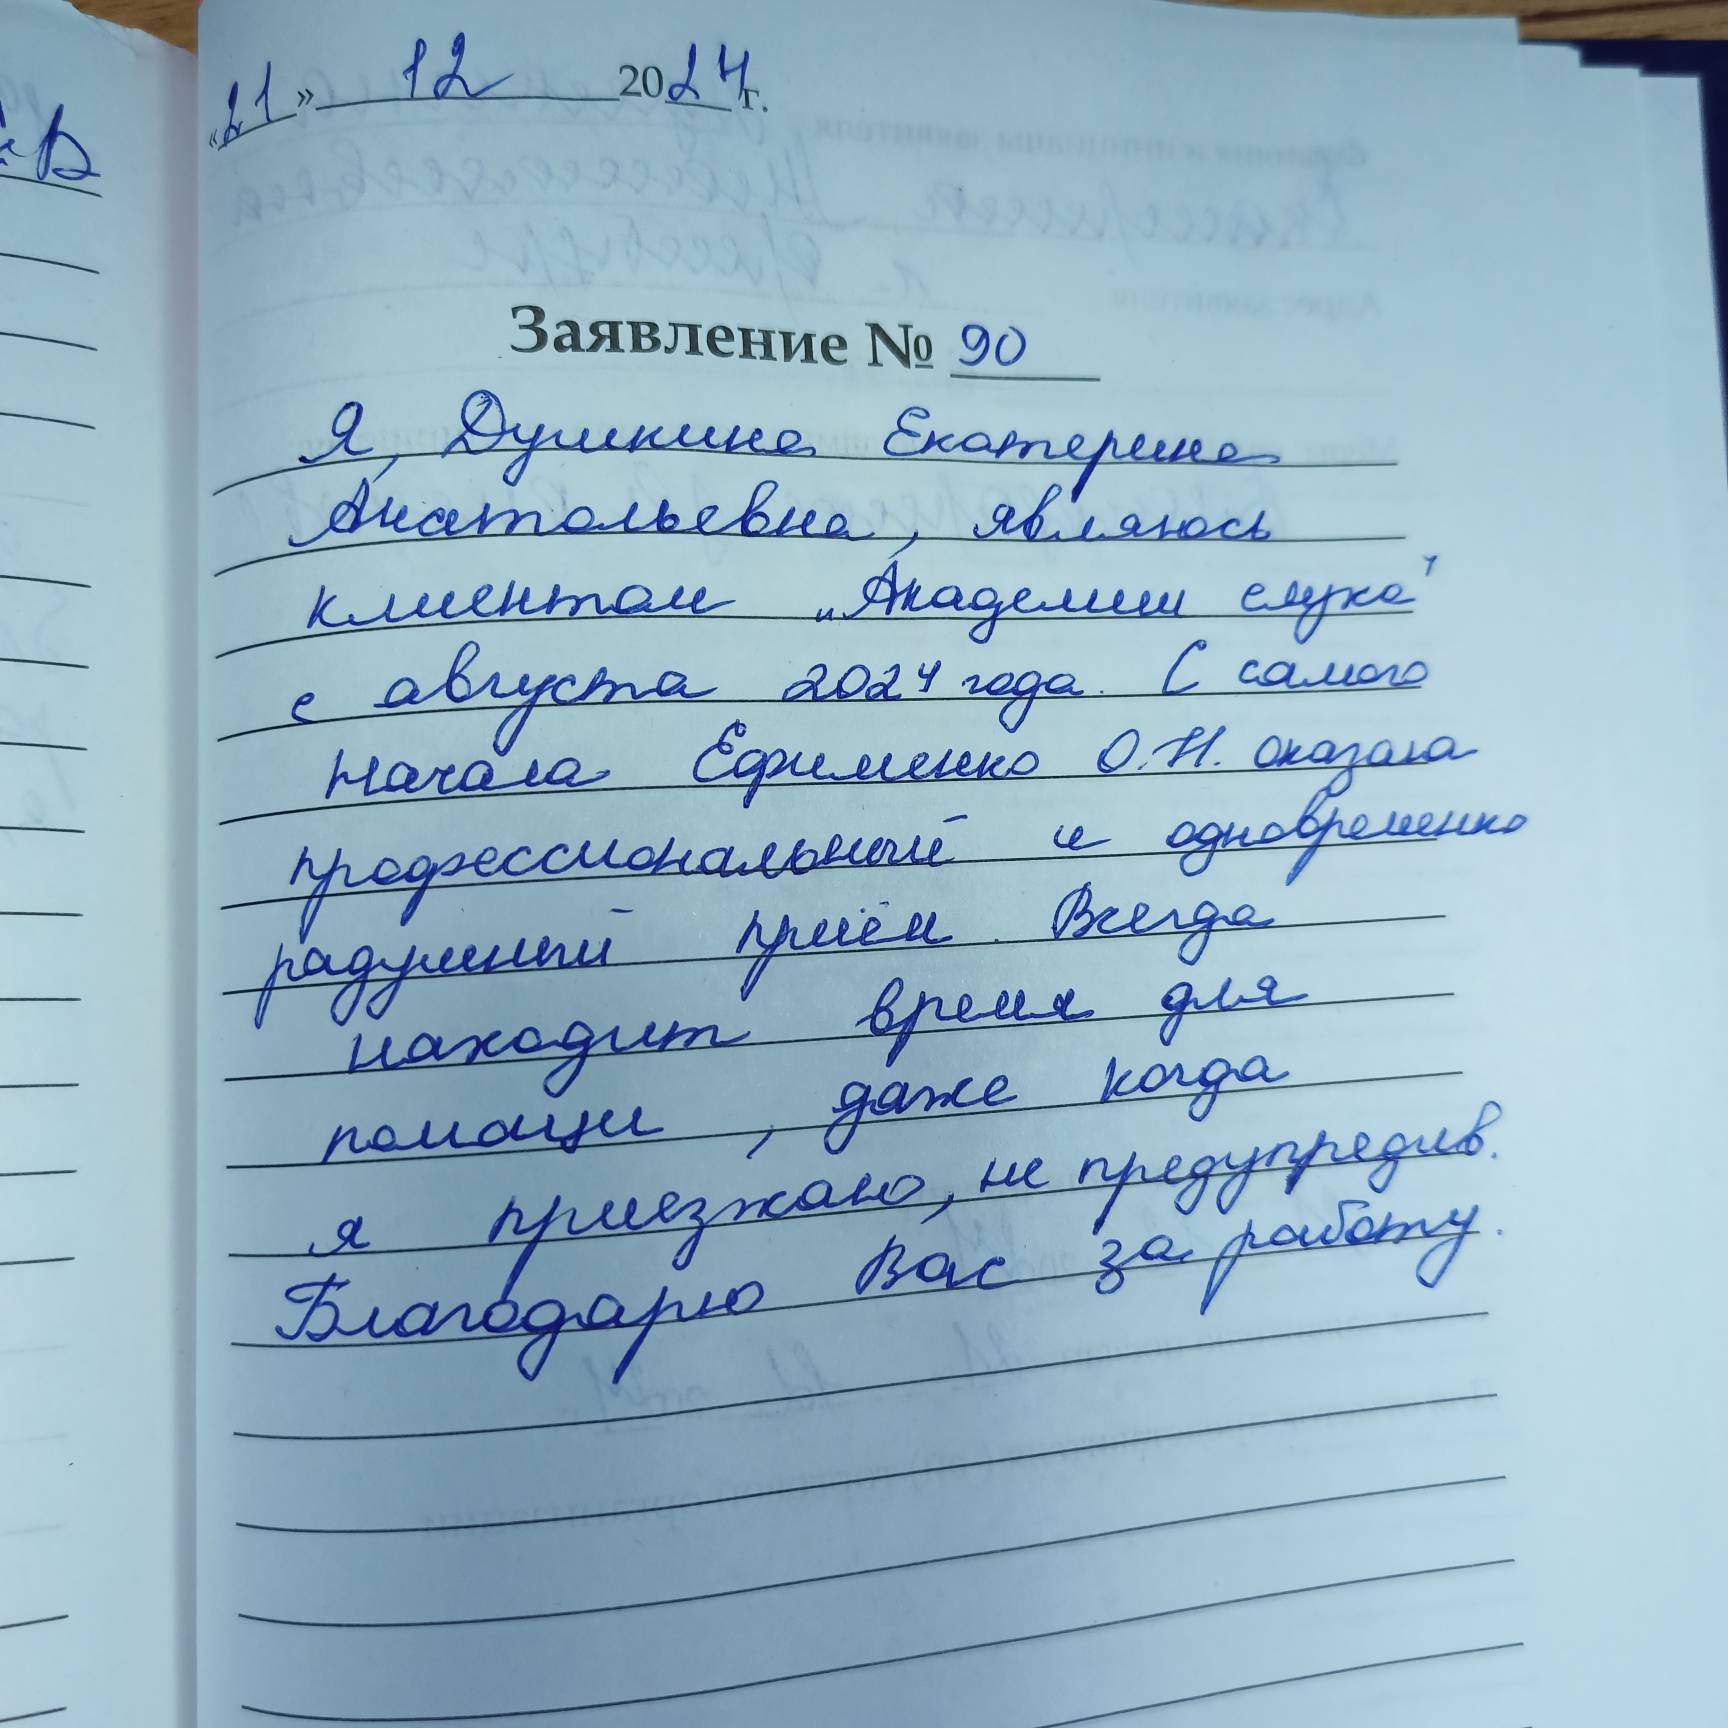 «21» 12 2024 г.
Заявление № 90
Я, Душкина Екатерина
Анатольевна, являюсь
клиентом „Академии слуха"
с августа 2024 года. С самого
начала Ефименко О.Н. оказала
профессиональный и одновременно
радушный приём. Всегда
находит время для
помощи, даже когда
я приезжаю, не предупредив.
Благодарю Вас за работу.